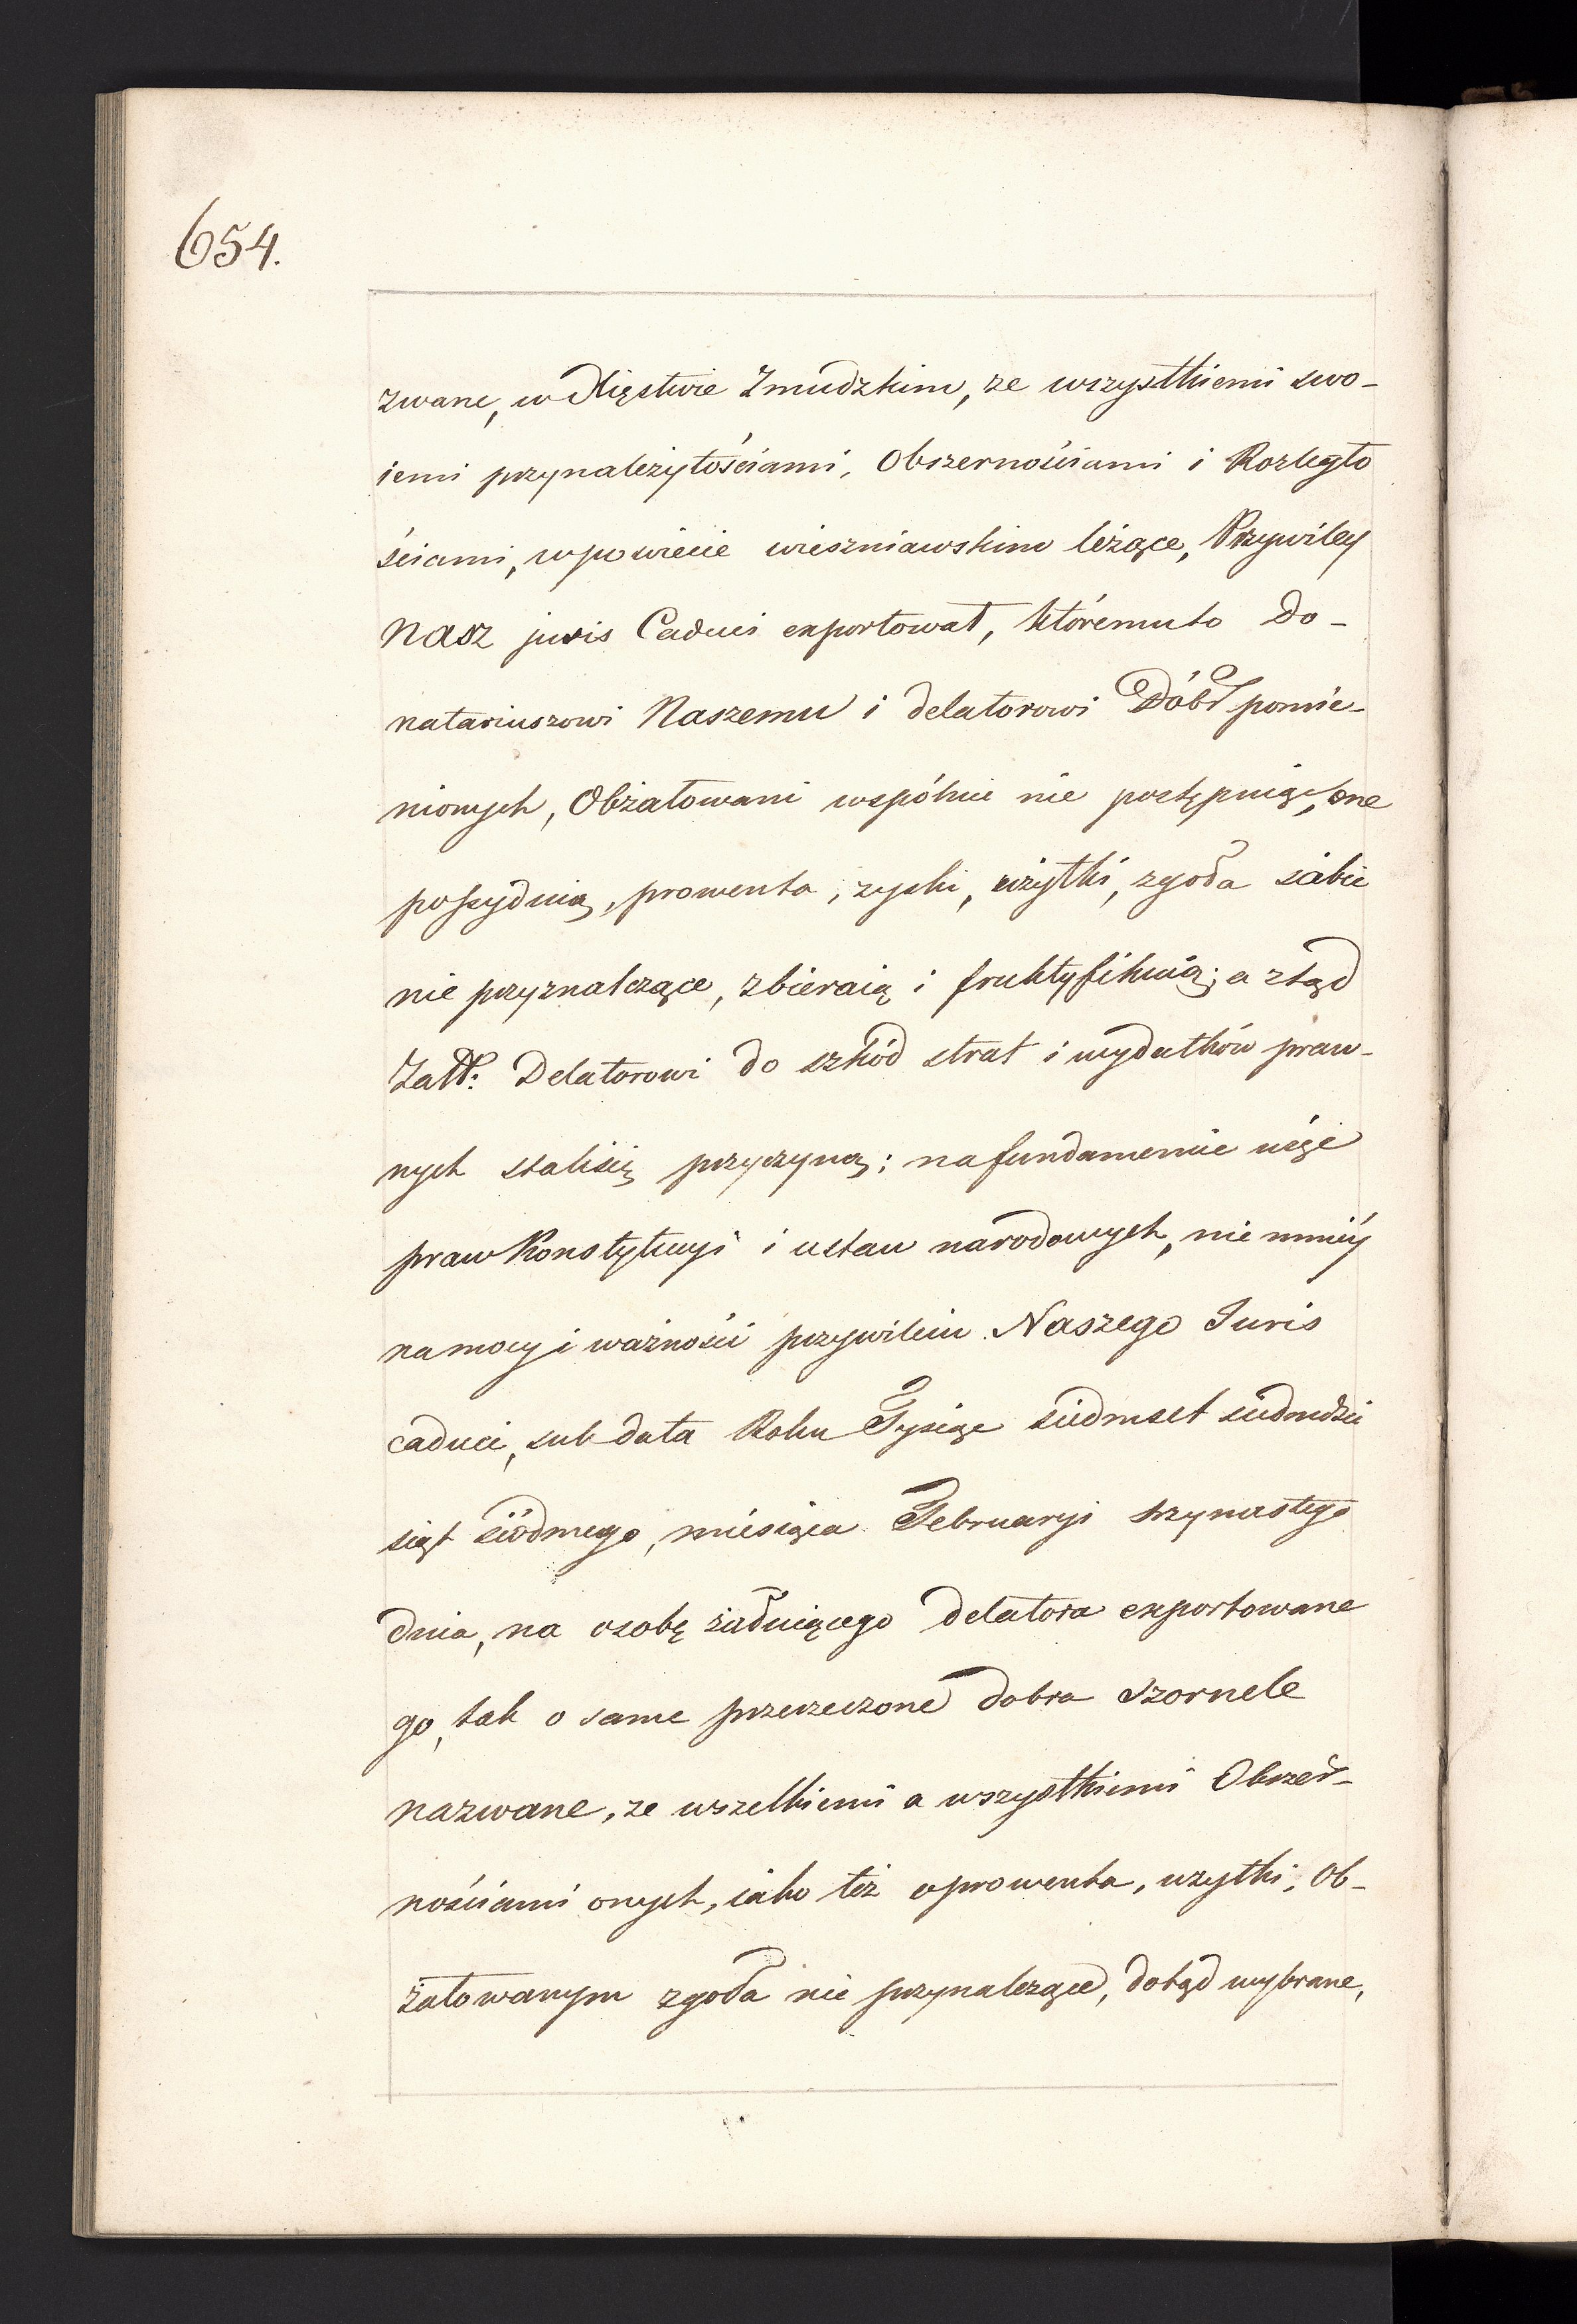 654.
zwane, w Xięstwie Zmudzkim, ze wszystkiemi swo-
iemi przynależytościami, Obszernościami i Rozległo
ściami, w powiecie wieszniawskim leżące, Przywiley
Nasz juris Caduci exportował, któremuto Do-
natariuszowi Naszemu i delatorowi Dóbr pomie-
nionych, Obżałowani wspólnie nie postępuiąc, one
possyduią, prowenta, zyski, użytki, zgoła sobie
nie przynalezące, zbieraią i fruktyfikuią; a ztąd
Delatorowi do szkód strat i wydatków praw-
nych stalisię przyczyną; na fundamencie więc
praw Konstytucyi i ustaw narodowych, nie mniéy
na mocy i ważności przywileiu Naszego Juris
caduci, sub data Roku Tysiąc siedmset siedmdzie
siąt siódmego, miesiąca Februaryi trzynastego
dnia, na osobę żałuiącego delatora exportowane
go, tak o same przerzeczone dobra Szornele
nazwane, ze wszelkiemi a wszystkiemi Obszer-
nościami onych, iako też o prowenta, uzytki, Ob-
żałowanym zgoła nie przynalezące, dotąd wybrane,